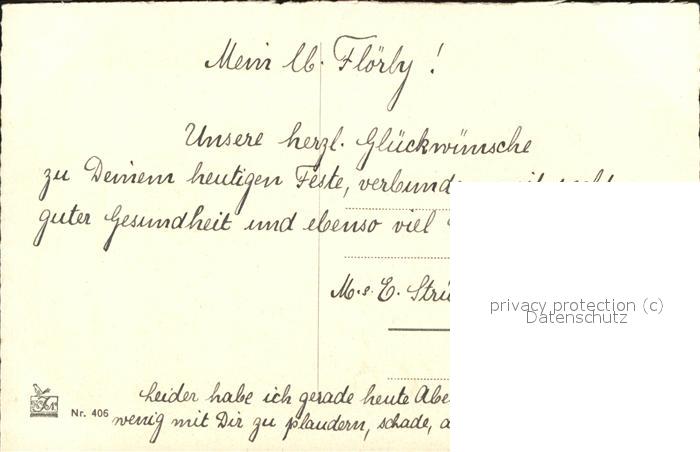 Mein lb. Flörly!
Unsere herzl. Glückwünsche
zu Deinem heutigen Feste, verbunden mit recht
guter Gesundheit und ebenso viel
M. s. E.
privacy protection (c)
Datenschutz
Leider habe ich gerade heute
Nr. 406
wenig mit Dir zu plaudern, schade,